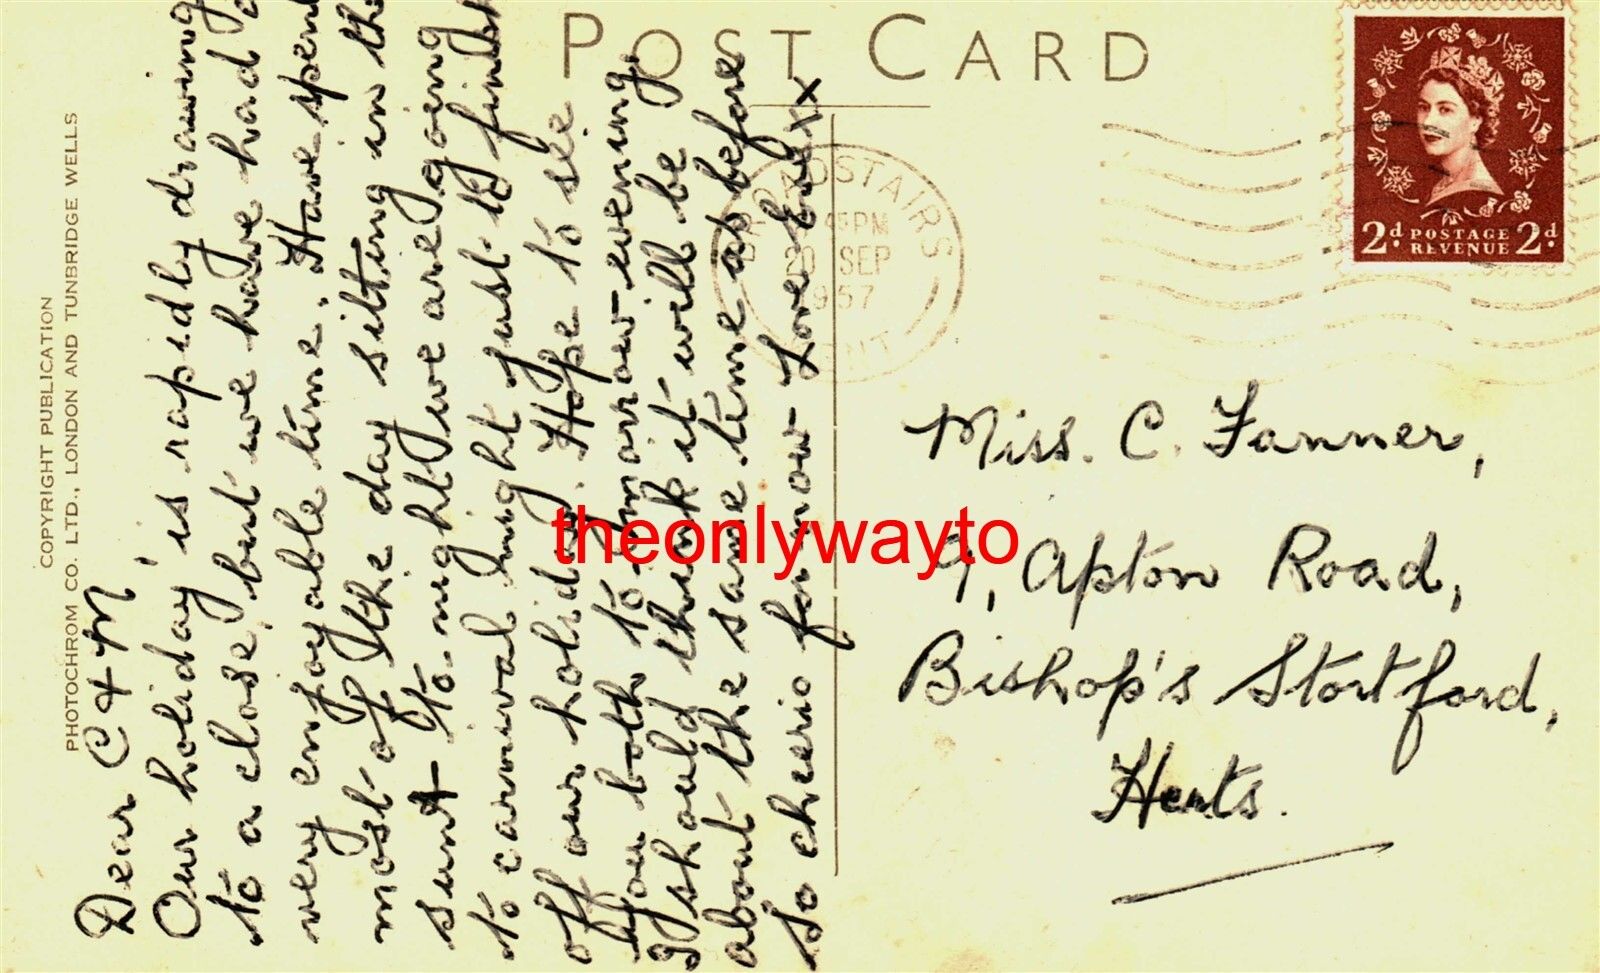 POST CARD
COPYRIGHT PUBLICATION
PHOTOCHROM CO. LTD., LONDON AND TUNBRIDGE WELLS
Dear C & M,
Our holiday is rapidly drawing
to a close, but we have had a
very enjoyable time. Have spent
most of the day sitting in the
sun & to-night we are going
to carnival night just to finish
off our holiday. Hope to see
you both to-morrow evening.
I should think it will be
about the same time as before
so cheerio for now Love
xxx
BROADSTAIRS
45PM
20 SEP
1957
KENT
2d POSTAGE 2d
REVENUE
Miss. C. Fanner,
9, Apton Road,
Bishop's Stortford,
Herts.
theonlywayto